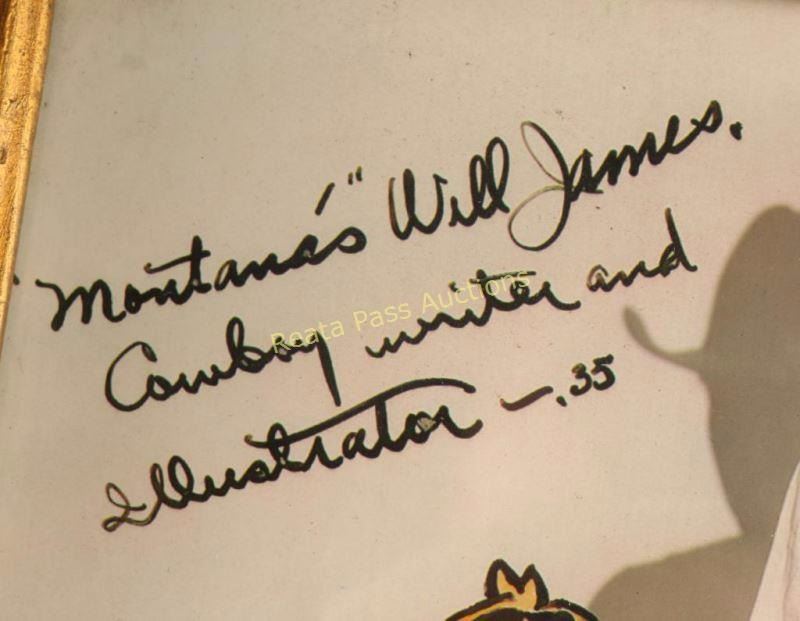 "Montana's" Will James.
Cowboy writer and
Illustrator — .35
Reata Pass Auctions